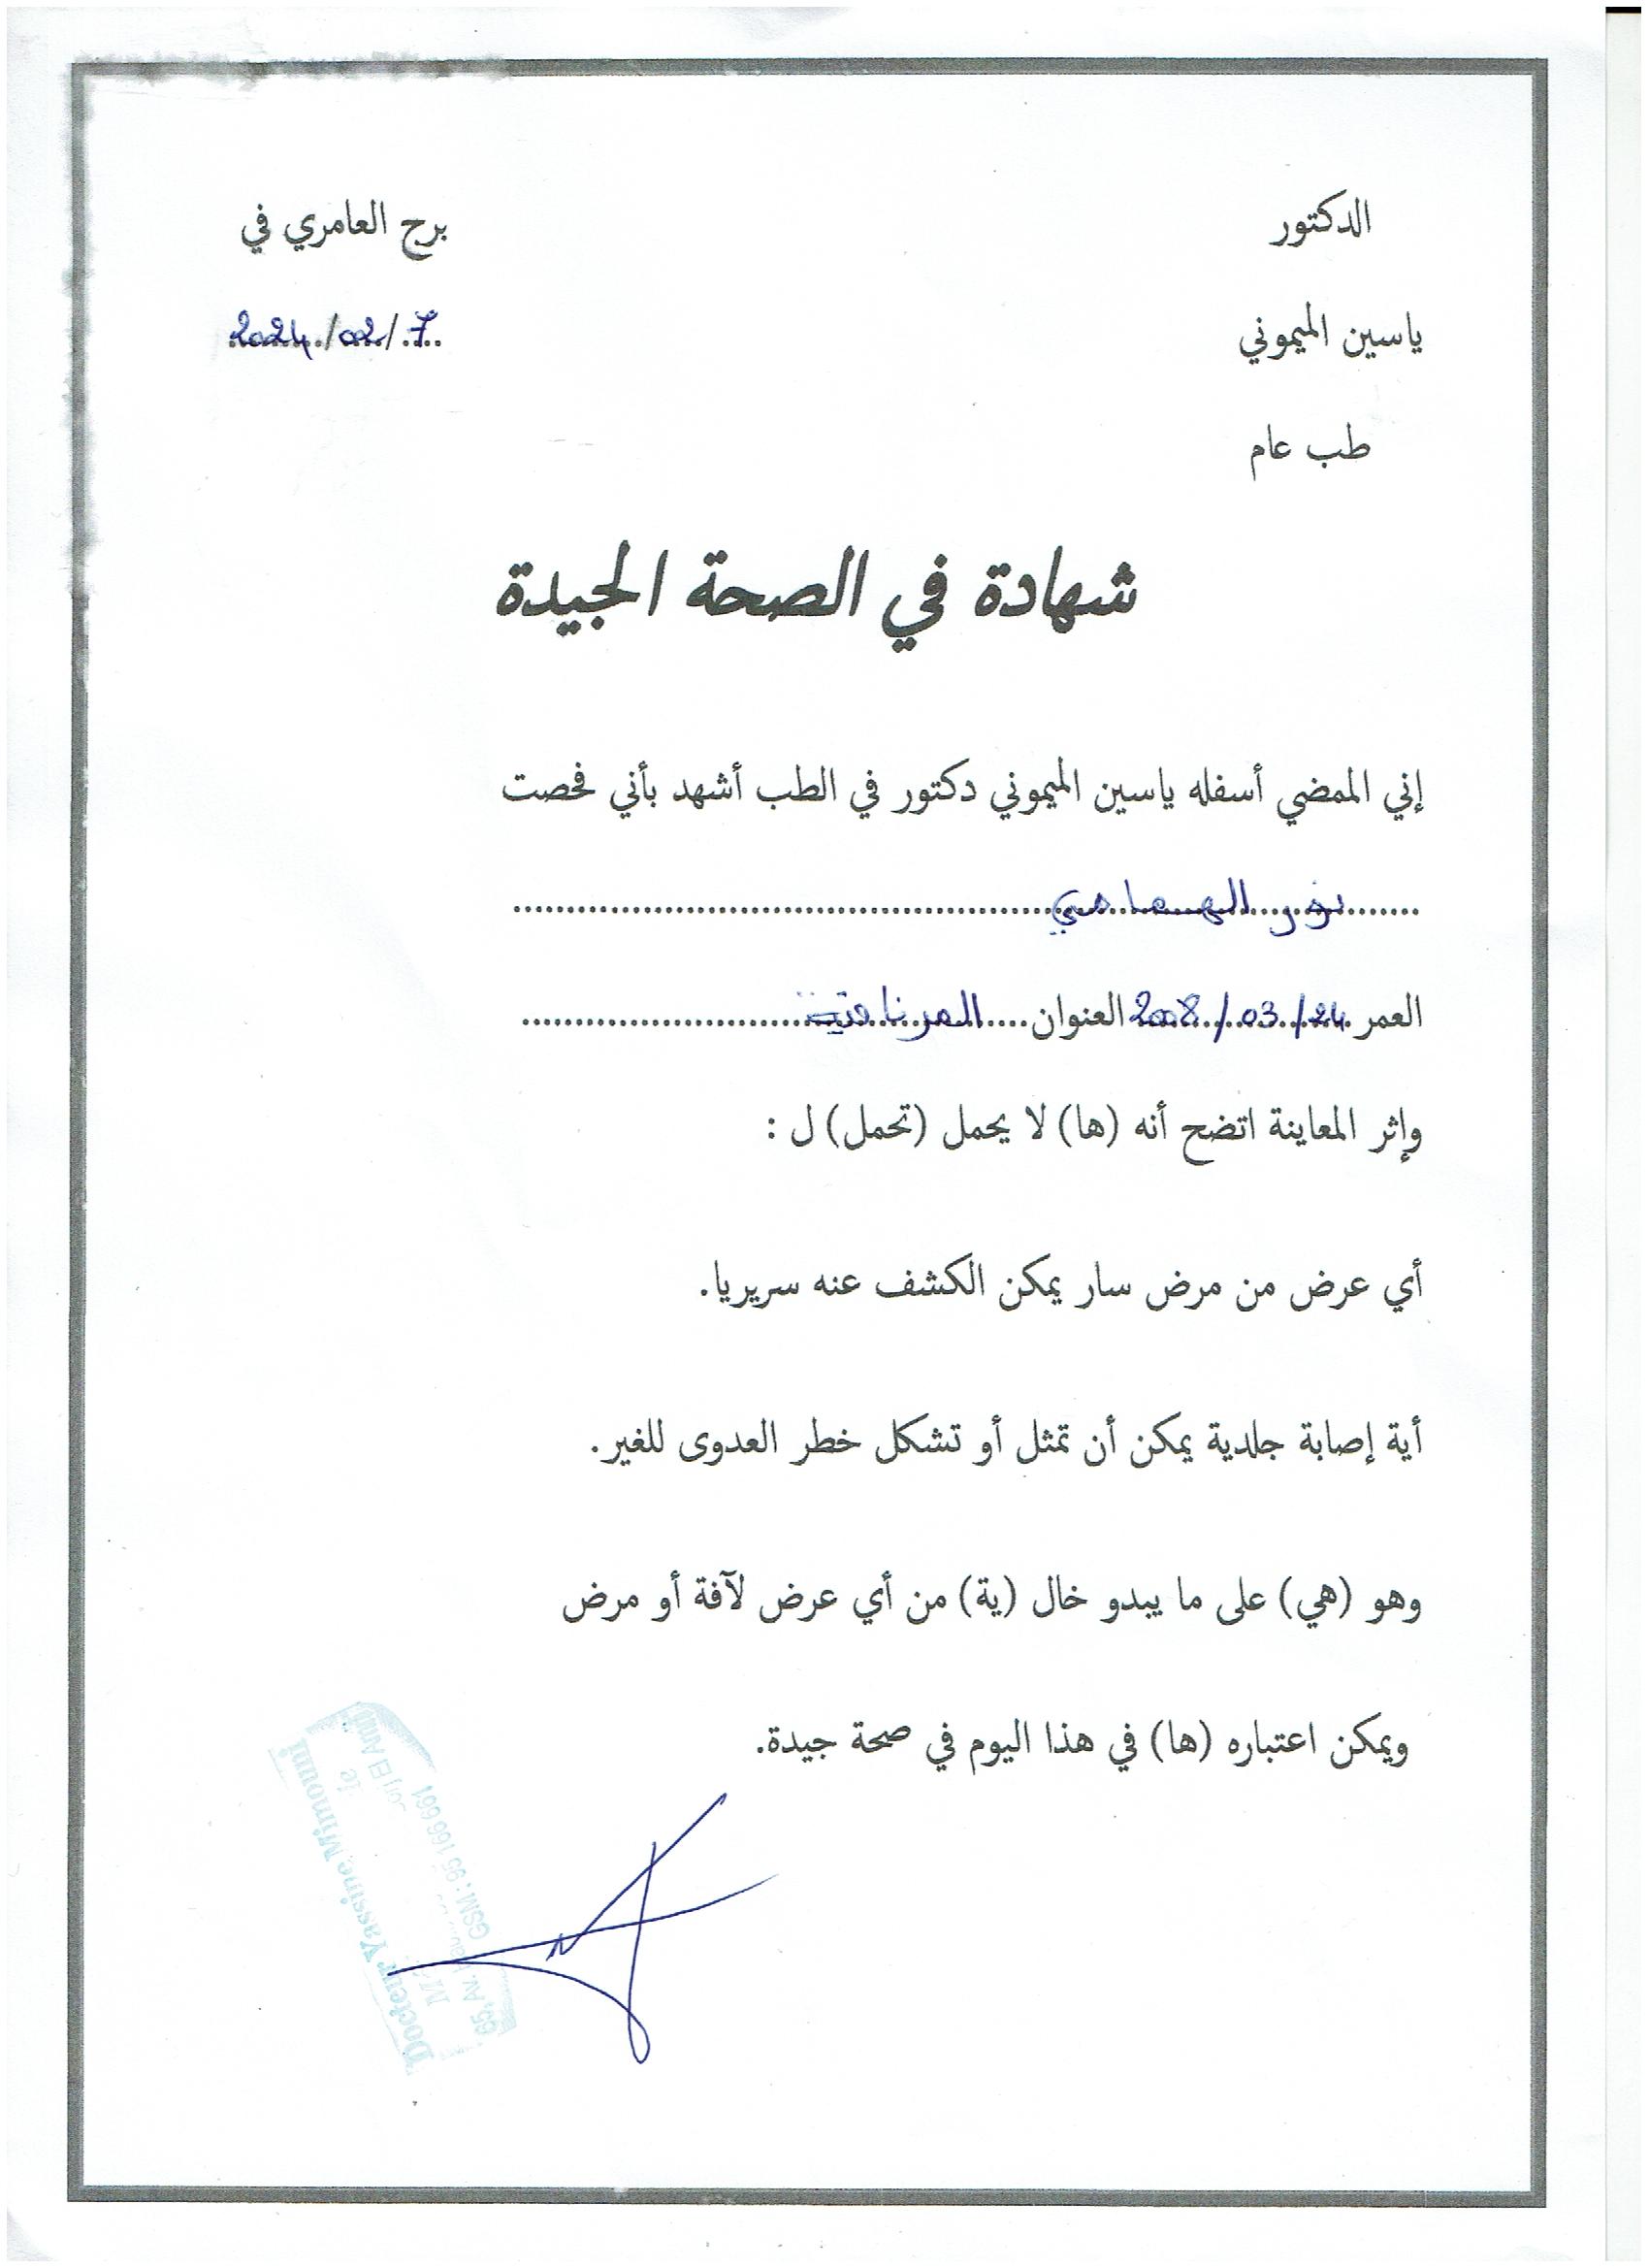 الدكتور
برج العامري في
ياسين الميموني
2024/02/7
طب عام
شهادة في الصحة الجيدة
إني الممضي أسفله ياسين الميموني دكتور في الطب أشهد بأني فحصت
نور الهمامي
العمر 24/03/2008 العنوان المرناقية
وإثر المعاينة اتضح أنه (ها) لا يحمل (تحمل) ل :
أي عرض من مرض سار يمكن الكشف عنه سريريا.
أية إصابة جلدية يمكن أن تمثل أو تشكل خطر العدوى للغير.
وهو (هي) على ما يبدو خال (ية) من أي عرض لآفة أو مرض
ويمكن اعتباره (ها) في هذا اليوم في صحة جيدة.
Docteur Yassine Mimouni
65, Av.
GSM : 95 166 661